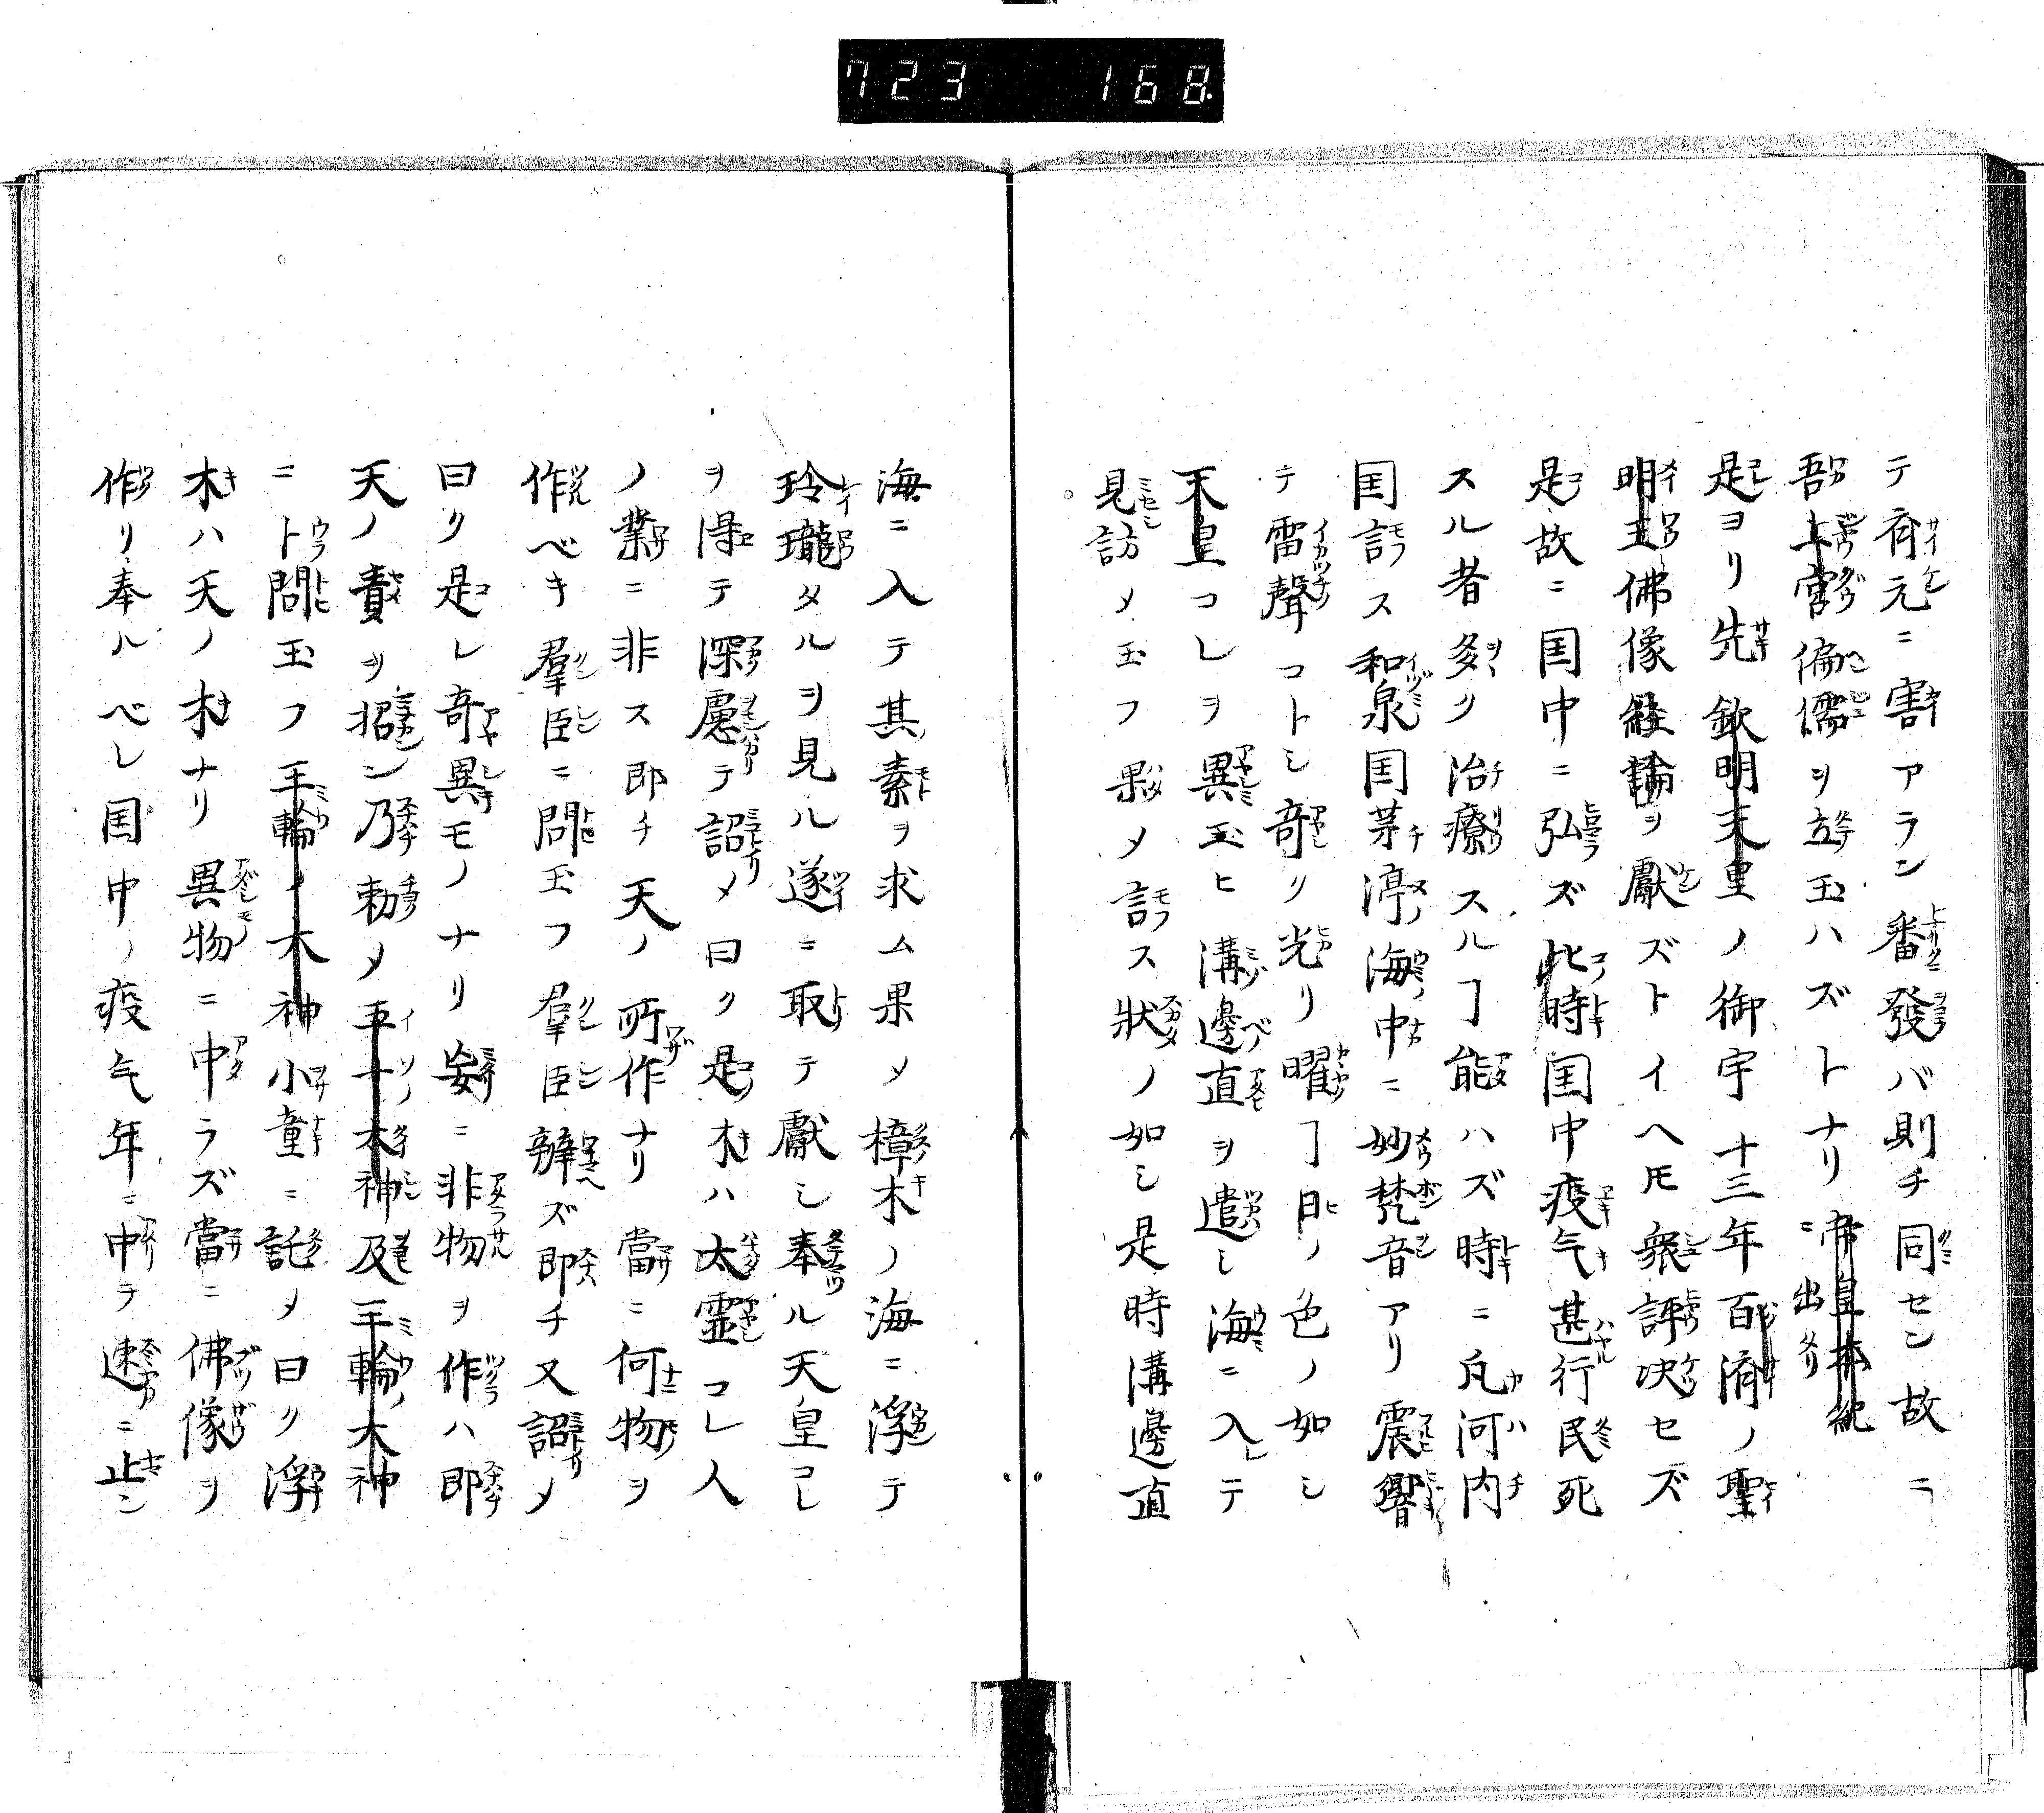 723 168
テ斉元ニ害アラン番發バ則チ同セン故ニ
吾上宮偏儒ヲ立玉ハズトナリ帝皇本紀ニ出タリ
是ヨリ先欽明天皇ノ御宇十三年百濟ノ聖
明王佛像経論ヲ獻ズトイヘ𪜈衆評决セズ
是故ニ国中ニ弘ズ此時国中疫气甚行民死
スル者多ク治療スルヿ能ハズ時ニ凡河内
国訁ス和泉国茅渟海中ニ妙梵音アリ震響
テ雷聲コトシ奇ク光リ曜ヿ日ノ色ノ如シ
天皇コレヲ異玉ヒ溝邊直ヲ遣シ海ニ入テ
見訪メ玉フ果メ言ス狀ノ如シ是時溝邊直
海ニ入テ其素ヲ求ム果メ樟木ノ海ニ浮テ
玲瓏タルヲ見ル遂ニ取テ獻シ奉ル天皇コレ
ヲ得テ深慮テ詔メ曰ク是木ハ太霊コレ人
ノ業ニ非ス即チ天ノ所作ナリ當ニ何物ヲ
作ベキ羣臣ニ問玉フ羣臣辨ズ即チ又詔メ
曰ク是レ奇異モノナリ妄ニ非物ヲ作ハ即
天ノ責ヲ招ン乃勅メ五十大神及三輪大神
ニト問玉フ三輪ノ大神小童ニ託メ曰ク浮
木ハ天ノ木ナリ異物ニ中ラズ當ニ佛像ヲ
作リ奉ルベレ国中ノ疫气年ニ中ヲ速ニ止ン